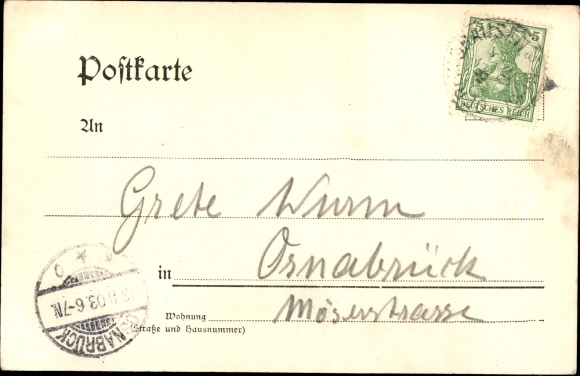 Postkarte
5
DEUTSCHES REICH
An
Grete Wurm
in Osnabrück
Wohnung Möserstrasse
(Straße und Hausnummer)
03. 6-7N.
OSNABRÜCK